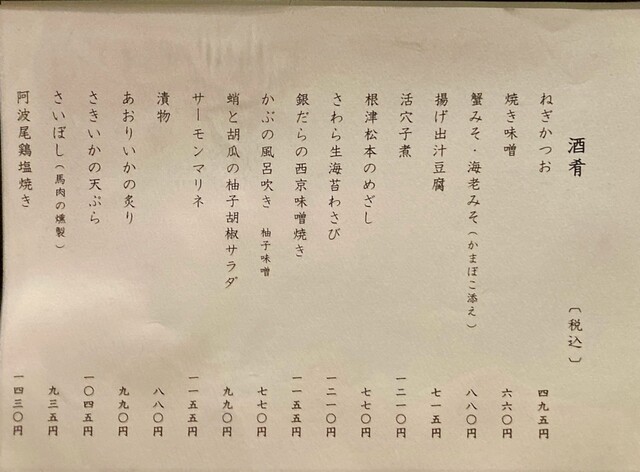 酒肴 〔税込〕
ねぎかつお 四九五円
焼き味噌 六六〇円
蟹みそ・海老みそ(かまぼこ添え) 八八〇円
揚げ出汁豆腐 七一五円
活穴子煮 一二一〇円
根津松本のめざし 七七〇円
さわら生海苔わさび 一二一〇円
銀だらの西京味噌焼き 一一五五円
かぶの風呂吹き 柚子味噌 七七〇円
蛸と胡瓜の柚子胡椒サラダ 九九〇円
サーモンマリネ 一一五五円
漬物 八八〇円
あおりいかの炙り 九九〇円
さきいかの天ぷら 一〇四五円
さいぼし(馬肉の燻製) 九三五円
阿波尾鶏塩焼き 一四三〇円